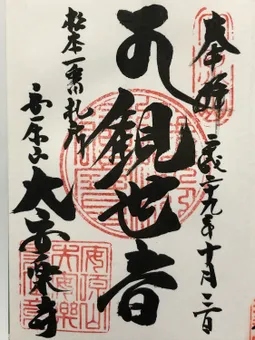 奉拝
平成二九年十月三日
正観世音
松本一番札所
安原山
大安楽寺